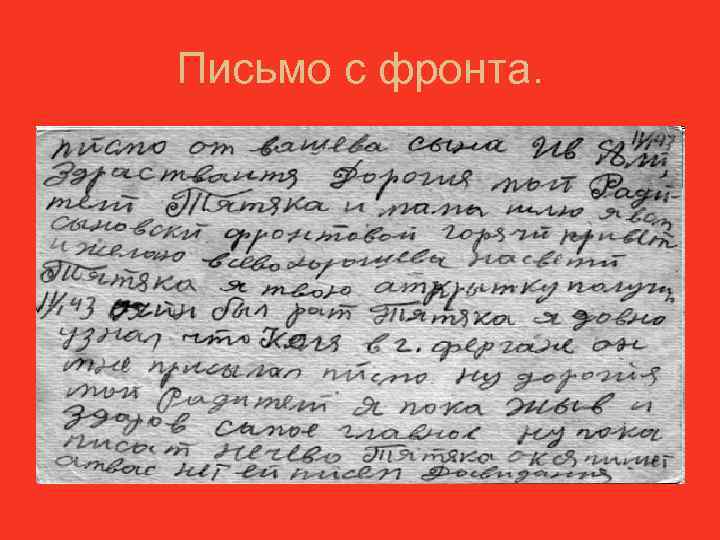 Письмо с фронта.
писмо от вашева сына Ив
Здраствайтя Дорогия мои Роди-
тели Тятяка и мама шлю я вам
сыновский фронтовой горячий привет
и желаю всево хорошева насвети
Тятяка я твою аткрытку получил
был рат Тятяка я довно
узнал что Коля в г. фергане он
мне присылал писмо ну дорогия
мои Радители я пока жыв и
здоров самое главное ну пока
писат нечево Тятяка
атвас нет ей писем Досвидания